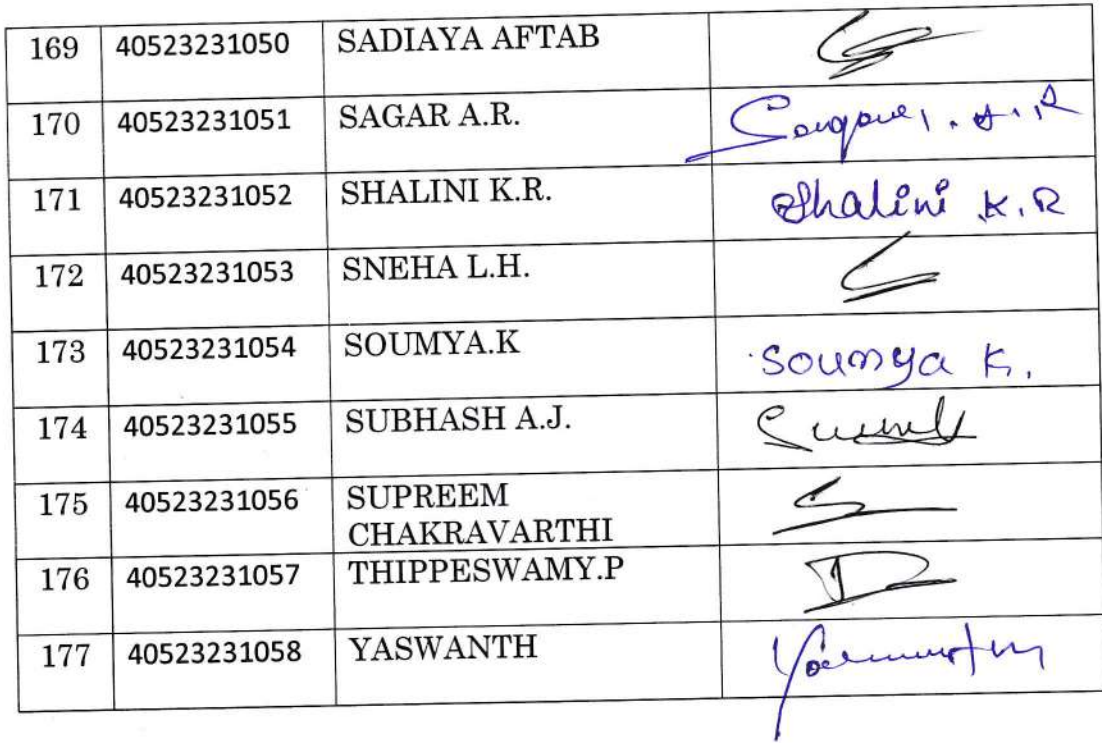 169 40523231050 SADIAYA AFTAB
170 40523231051 SAGAR A.R.
171 40523231052 SHALINI K.R. Shalini K.R
172 40523231053 SNEHA L.H.
173 40523231054 SOUMYA.K Soumya K.
174 40523231055 SUBHASH A.J.
175 40523231056 SUPREEM
CHAKRAVARTHI
176 40523231057 THIPPESWAMY.P
177 40523231058 YASWANTH